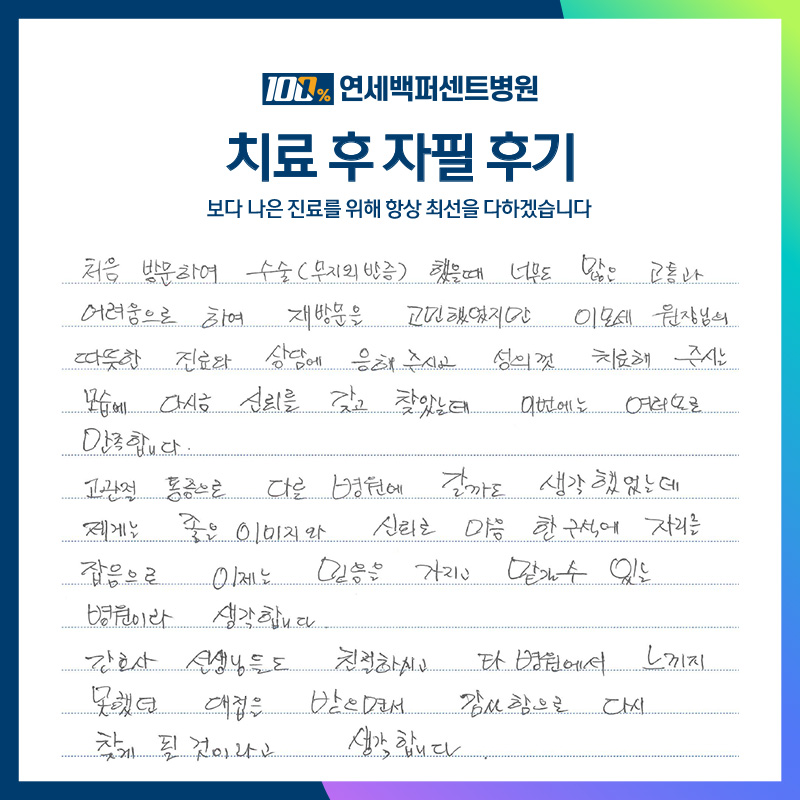 100% 연세백퍼센트병원
치료 후 자필 후기
보다 나은 진료를 위해 항상 최선을 다하겠습니다
처음 방문하여 수술(무지외반증) 했을때 너무도 많은 고통과
어려움으로 하여 재방문을 고민했었지만 이모세 원장님의
따뜻한 진료와 상담에 응해 주시고 성의껏 치료해 주시는
모습에 다시금 신뢰를 갖고 찾았는데 이번에는 여러모로
만족합니다.
고관절 통증으로 다른 병원에 갈까도 생각했었는데
제게는 좋은 이미지와 신뢰로 마음 한구석에 자리를
잡음으로 이제는 믿음을 가지고 맡길수 있는
병원이라 생각합니다.
간호사 선생님들도 친절하시고 타 병원에서 느끼지
못했던 대접을 받으면서 감사함으로 다시
찾게 될 것이라고 생각합니다.